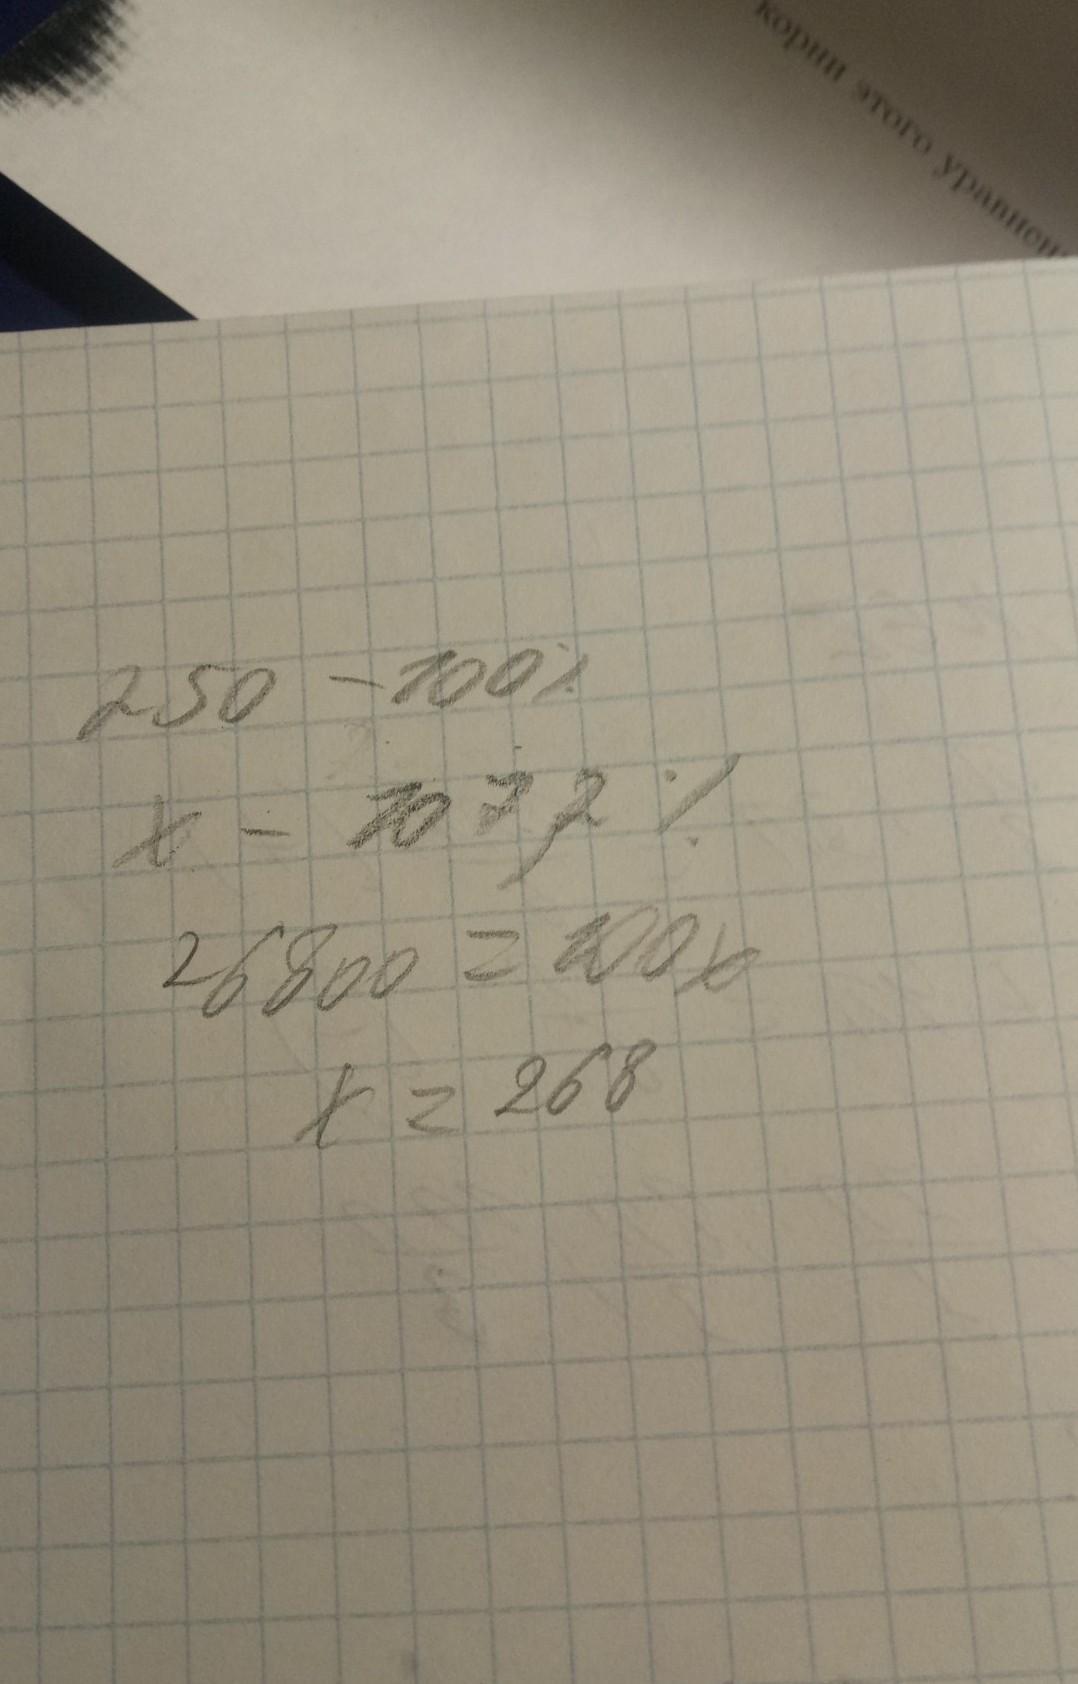 корни этого уравнен
250 - 100%
x - 107,2 %
26800 = 100x
x = 268